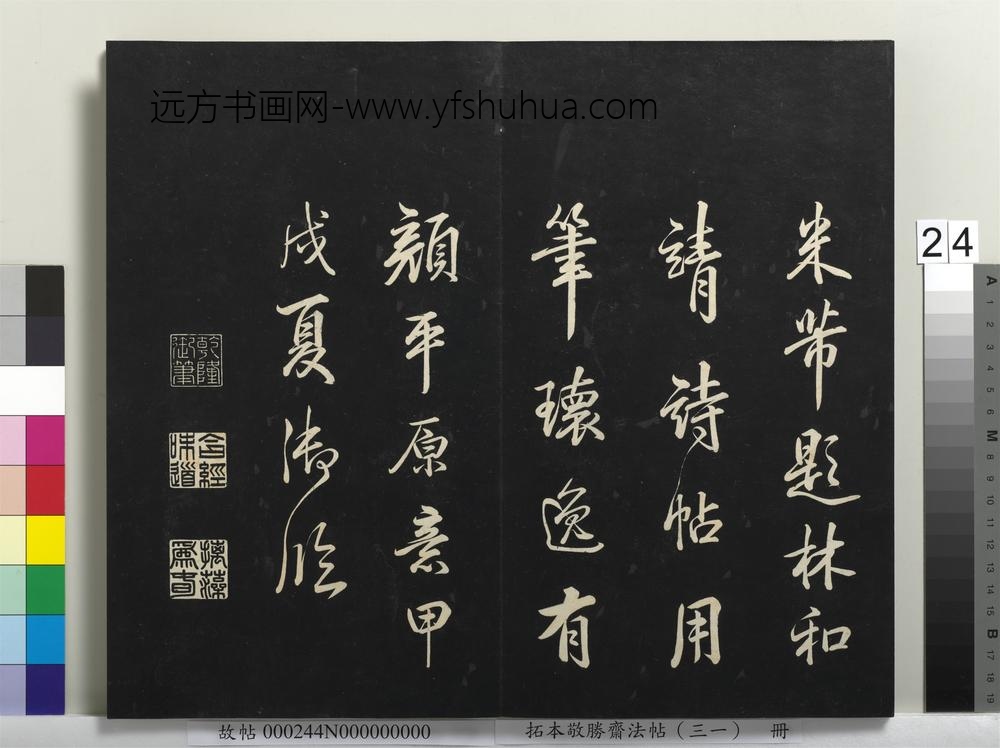 远方书画网-www.yfshuhua.com
米芾題林和
靖詩帖用
筆瓌逸有
顏平原意甲
戌夏御臨
乾隆御筆
含經味道
摛藻為春
24
A 1 2 3 4 5 6 M 8 9 10 11 12 13 14 15 B 17 18 19
故帖 000244N000000000
拓本敬勝齋法帖（三一） 冊